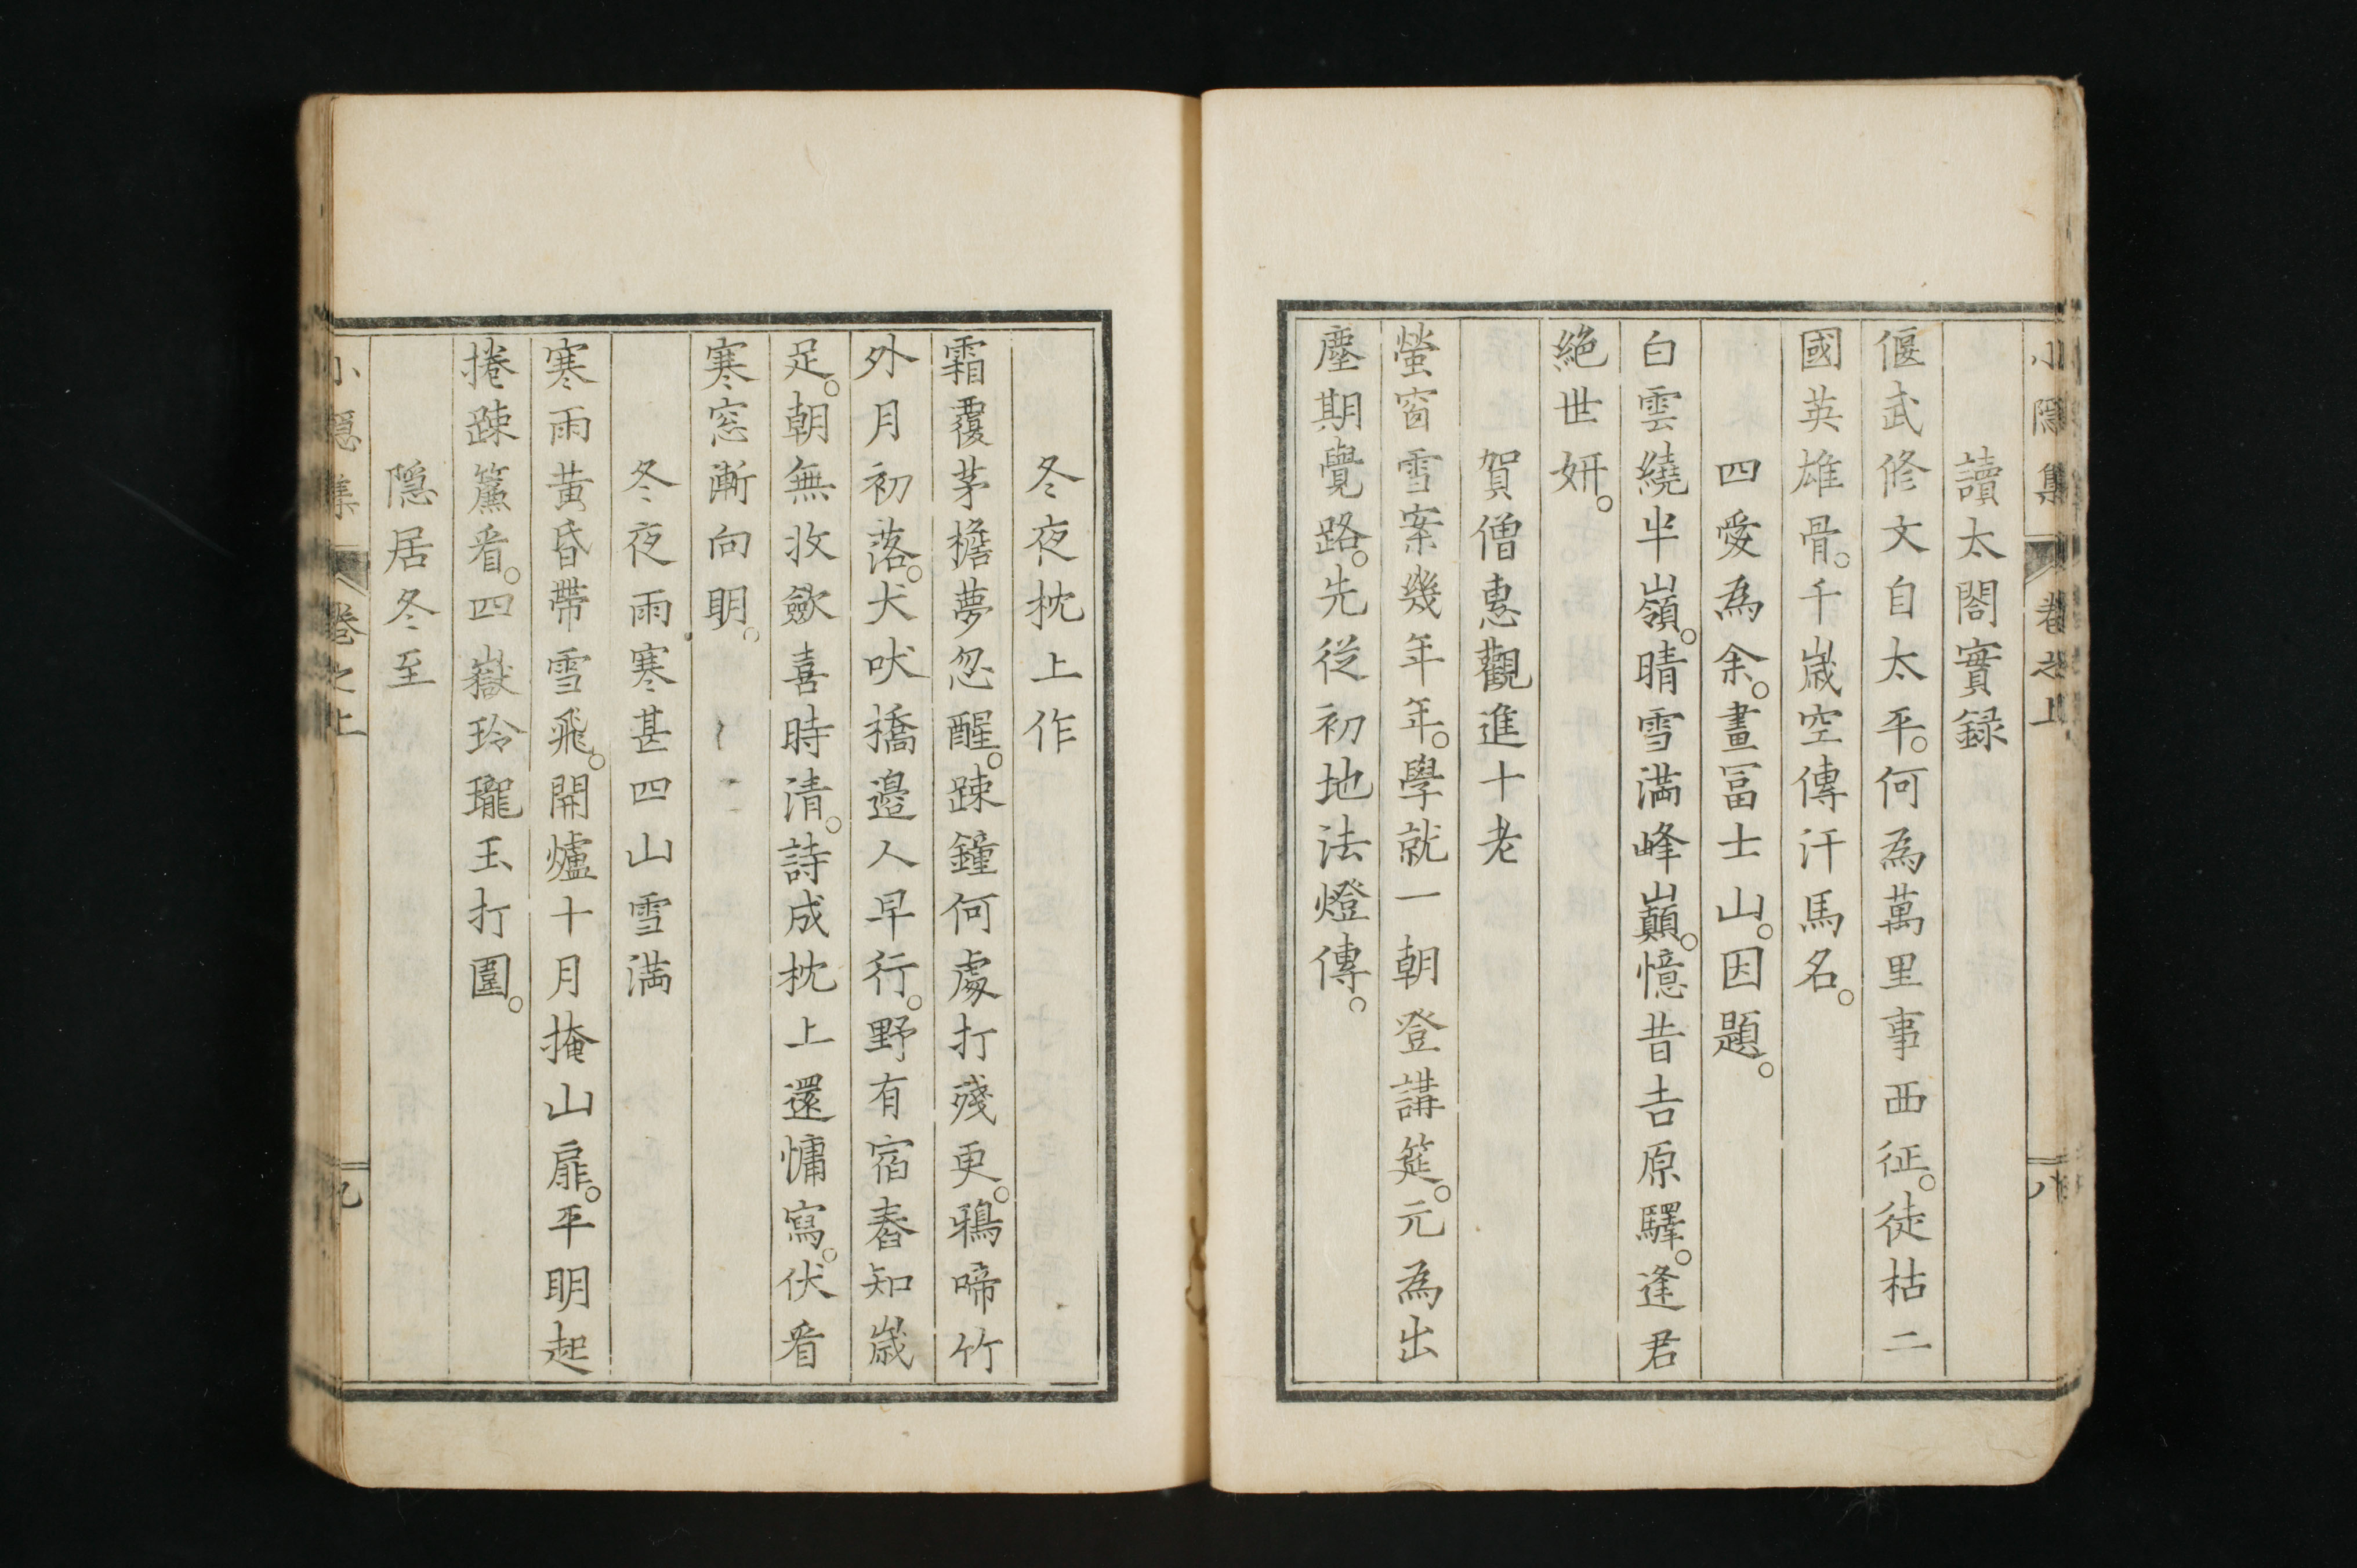 小隠集 卷之上 八
讀太閤實録
偃武修文自太平。何為萬里事西征。徒枯二
國英雄骨。千嵗空傳汗馬名。
四愛為余。畫冨士山。因題。
白雲繞半嶺。晴雪満峰巔。憶昔吉原驛。逢君
絶世妍。
賀僧恵觀進十老
螢窗雪案幾年年。學就一朝登講筵。元為出
塵期覺路。先従初地法燈傳。
冬夜枕上作
霜覆茅檐夢忽醒。踈鐘何處打殘更。鴉啼竹
外月初落。犬吠橋邉人早行。野有宿舂知嵗
足。朝無收歛喜時清。詩成枕上還慵寫。伏看
寒窓漸向明。
冬夜雨寒甚四山雪満
寒雨黄昏帶雪飛。開爐十月掩山扉。平明起
捲踈簾看。四嶽玲瓏玉打圍。
隠居冬至
小隠集 卷之上 九